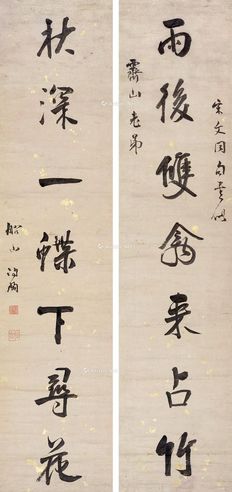 宋文同句書似
雨後雙禽來占竹
霽山老弟
秋深一蝶下尋花
船山問陶